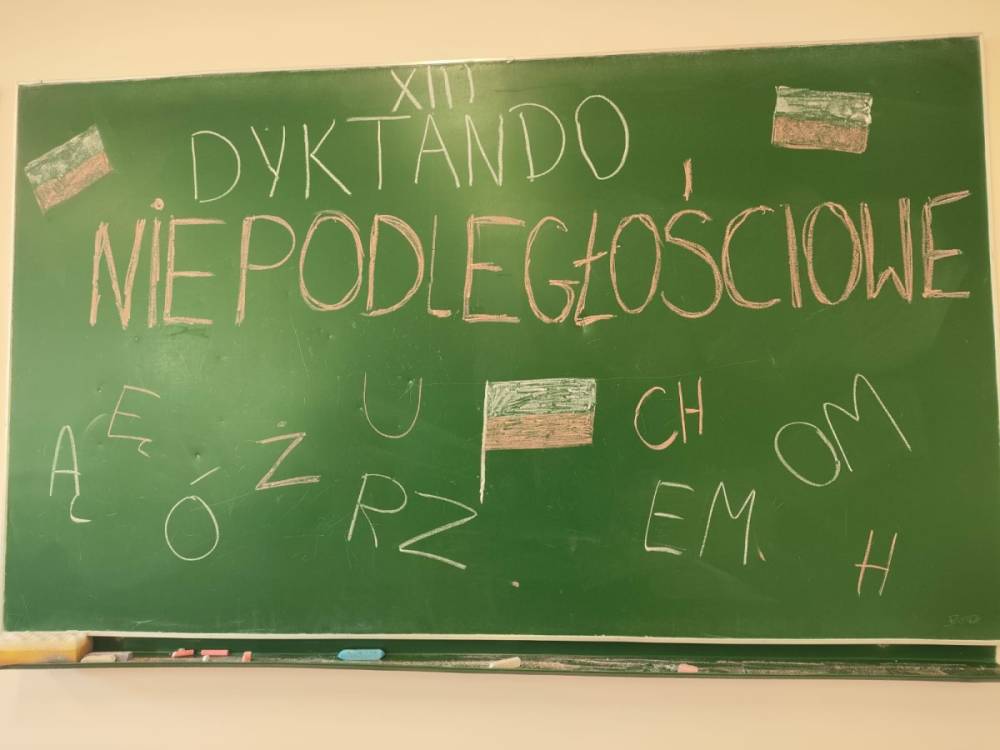 XIII
DYKTANDO
NIEPODLEGŁOŚCIOWE
Ę U CH OM
Ą Ó Ż RZ EM H